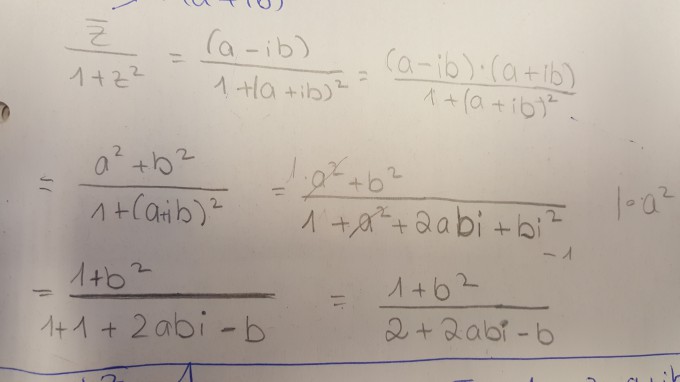 (a+ib)
z̄/(1+z²) = (a-ib)/(1+(a+ib)²) = (a-ib)·(a+ib)/(1+(a+ib)²)
= (a²+b²)/(1+(a+ib)²) = (1·a²+b²)/(1+a²+2abi+bi²) |∘a²
-1
= (1+b²)/(1+1+2abi-b) = (1+b²)/(2+2abi-b)